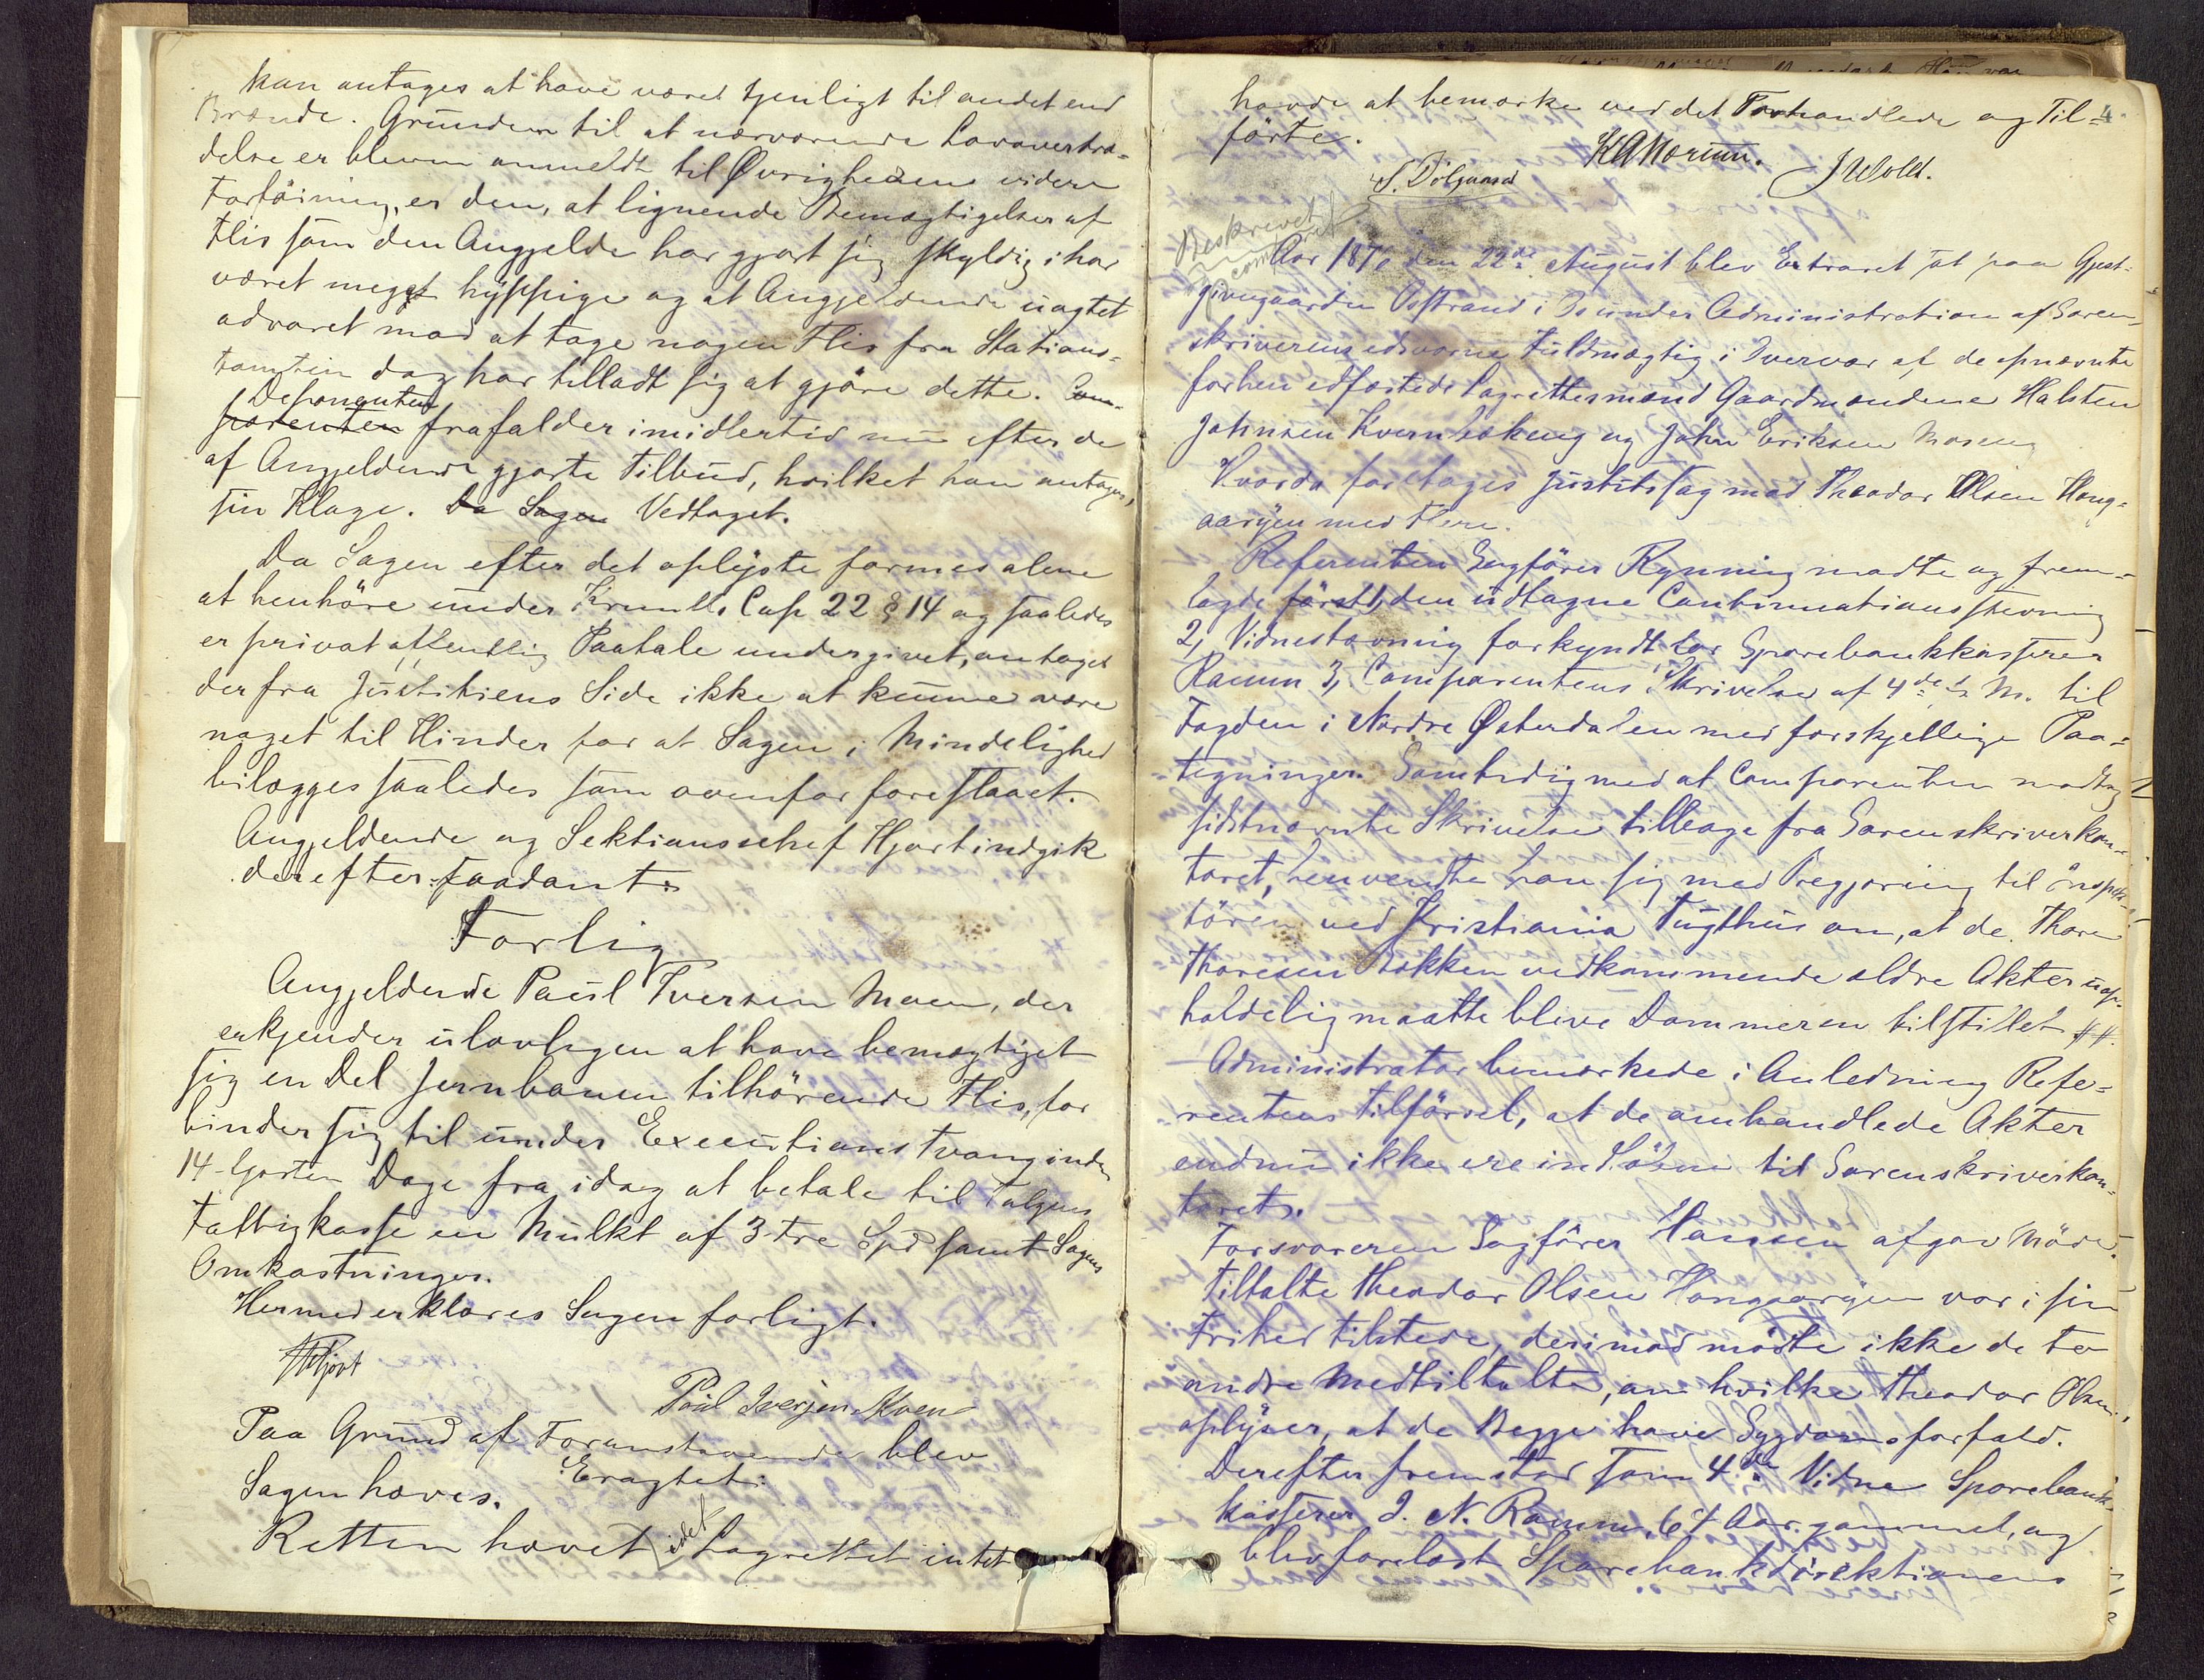 kan antages at have været tjenligt til andet end
Brænde. Grunden til at nærværende Lovovertræ-
delse er bleven anmeldt til Øvrighedens videre
Forføining, er den, at lignende Bemægtigelser af
Flis som den Angjeldde har gjort sig skyldig i har
været meget hyppige og at Angjeldende uagtet
advaret mod at tage nogen Flis fra Stations-
tomten dog har tilladt sig at gjøre dette. Com-
Deponenten
parenten frafalder imidlertid nu efter de
af Angjeldende gjorte Tilbud, hvilket han antager,
sin Klage. Da Sagen Vedtaget.
Da Sagen efter det oplyste formes alene
at henhøre under Krimll. Cap 22 § 14 og saaledes
er privat offentlig Paatale undergivet, antages
der fra Justitiens Side ikke at kunne være
noget til Hinder for at Sagen i Mindelighed
bilægges saaledes som ovenfor foreslaaet.
Angjeldende og Sektionschef Hjort indgik
derefter saadant:
Forlig
Angjeldende Paul Iversen Moen, der
erkjender ulovligen at have bemægtiget
sig en Del Jernbanen tilhørende Flis, for
binder sig til under Executions Tvang inden
14 fjorten Dage fra idag at betale til Tolgens
Fattigkasse en Mulkt af 3 tre Spd samt Sagens
Omkostninger.
Hermed erklæres Sagen forligt.
Hjort
Paul Iversen Moen
Paa Grund af Foranstaaende blev
Eragtet:
Sagen hæves.
Retten hævet idet Lagrettet intet
4
havde at bemærke ved det Forhandlede og Til-
førte.
S. Dølgaard
J Wold.
Beskrevet
comf
Aar 1876 den 22de August blev Extraret sat paa Gjest-
givergaarden Osstrand i under Administration af Soren-
skriverens edsvorne Fuldmægtig i Overvær af de opnævnte
forhen edfæstede Lagrettesmænd Gaardmændene Halsten
Johnsen og John Eriksen Moseng
Hvorda foretages Justitssag mod Theodor Olsen Hong-
aarøien med Flere.
Referenten Sagfører Rynning mødte og frem-
lagde først, den udtagne Continuationsstevning
2, Vidnestævning forkyndt for Sparebankkasserer
Ramm 3, Comparentens Skrivelse af 4de ds. M. til
Fogden i Nordre Østerdalen med forskjellige Paa-
tegninger. Samtidig med at Comparenten modtog
sidstnævnte Skrivelse tilbage fra Sorenskriverkon-
toret, henvendte han sig med Begjæring til Inspek-
tøren ved Kristiania Tugthus om, at de Thore
Thoresen Bakken vedkommende ældre Akter uop-
holdelig maatte blive Dommeren tilstillet
Administrator bemærkede i Anledning Refe-
rentens Tilførsel, at de omhandlede Akter
endnu ikke ere indløbne til Sorenskriverkon-
toret.
Forsvareren Sagfører Hansen afgav Møde.
Tiltalte Theodor Olsen Hongaarøien var i sin
Frihed tilstede, derimod mødte ikke de to
andre Medtiltalte, om hvilke Theodor Olsen,
oplyser, at de Begge have Sygdomsforfald.
Derefter fremstod som 4de Vidne Sparebank-
kasserer J. N. Ramm, 64 Aar gammel, og
blev forelæst Sparebankdirektionens